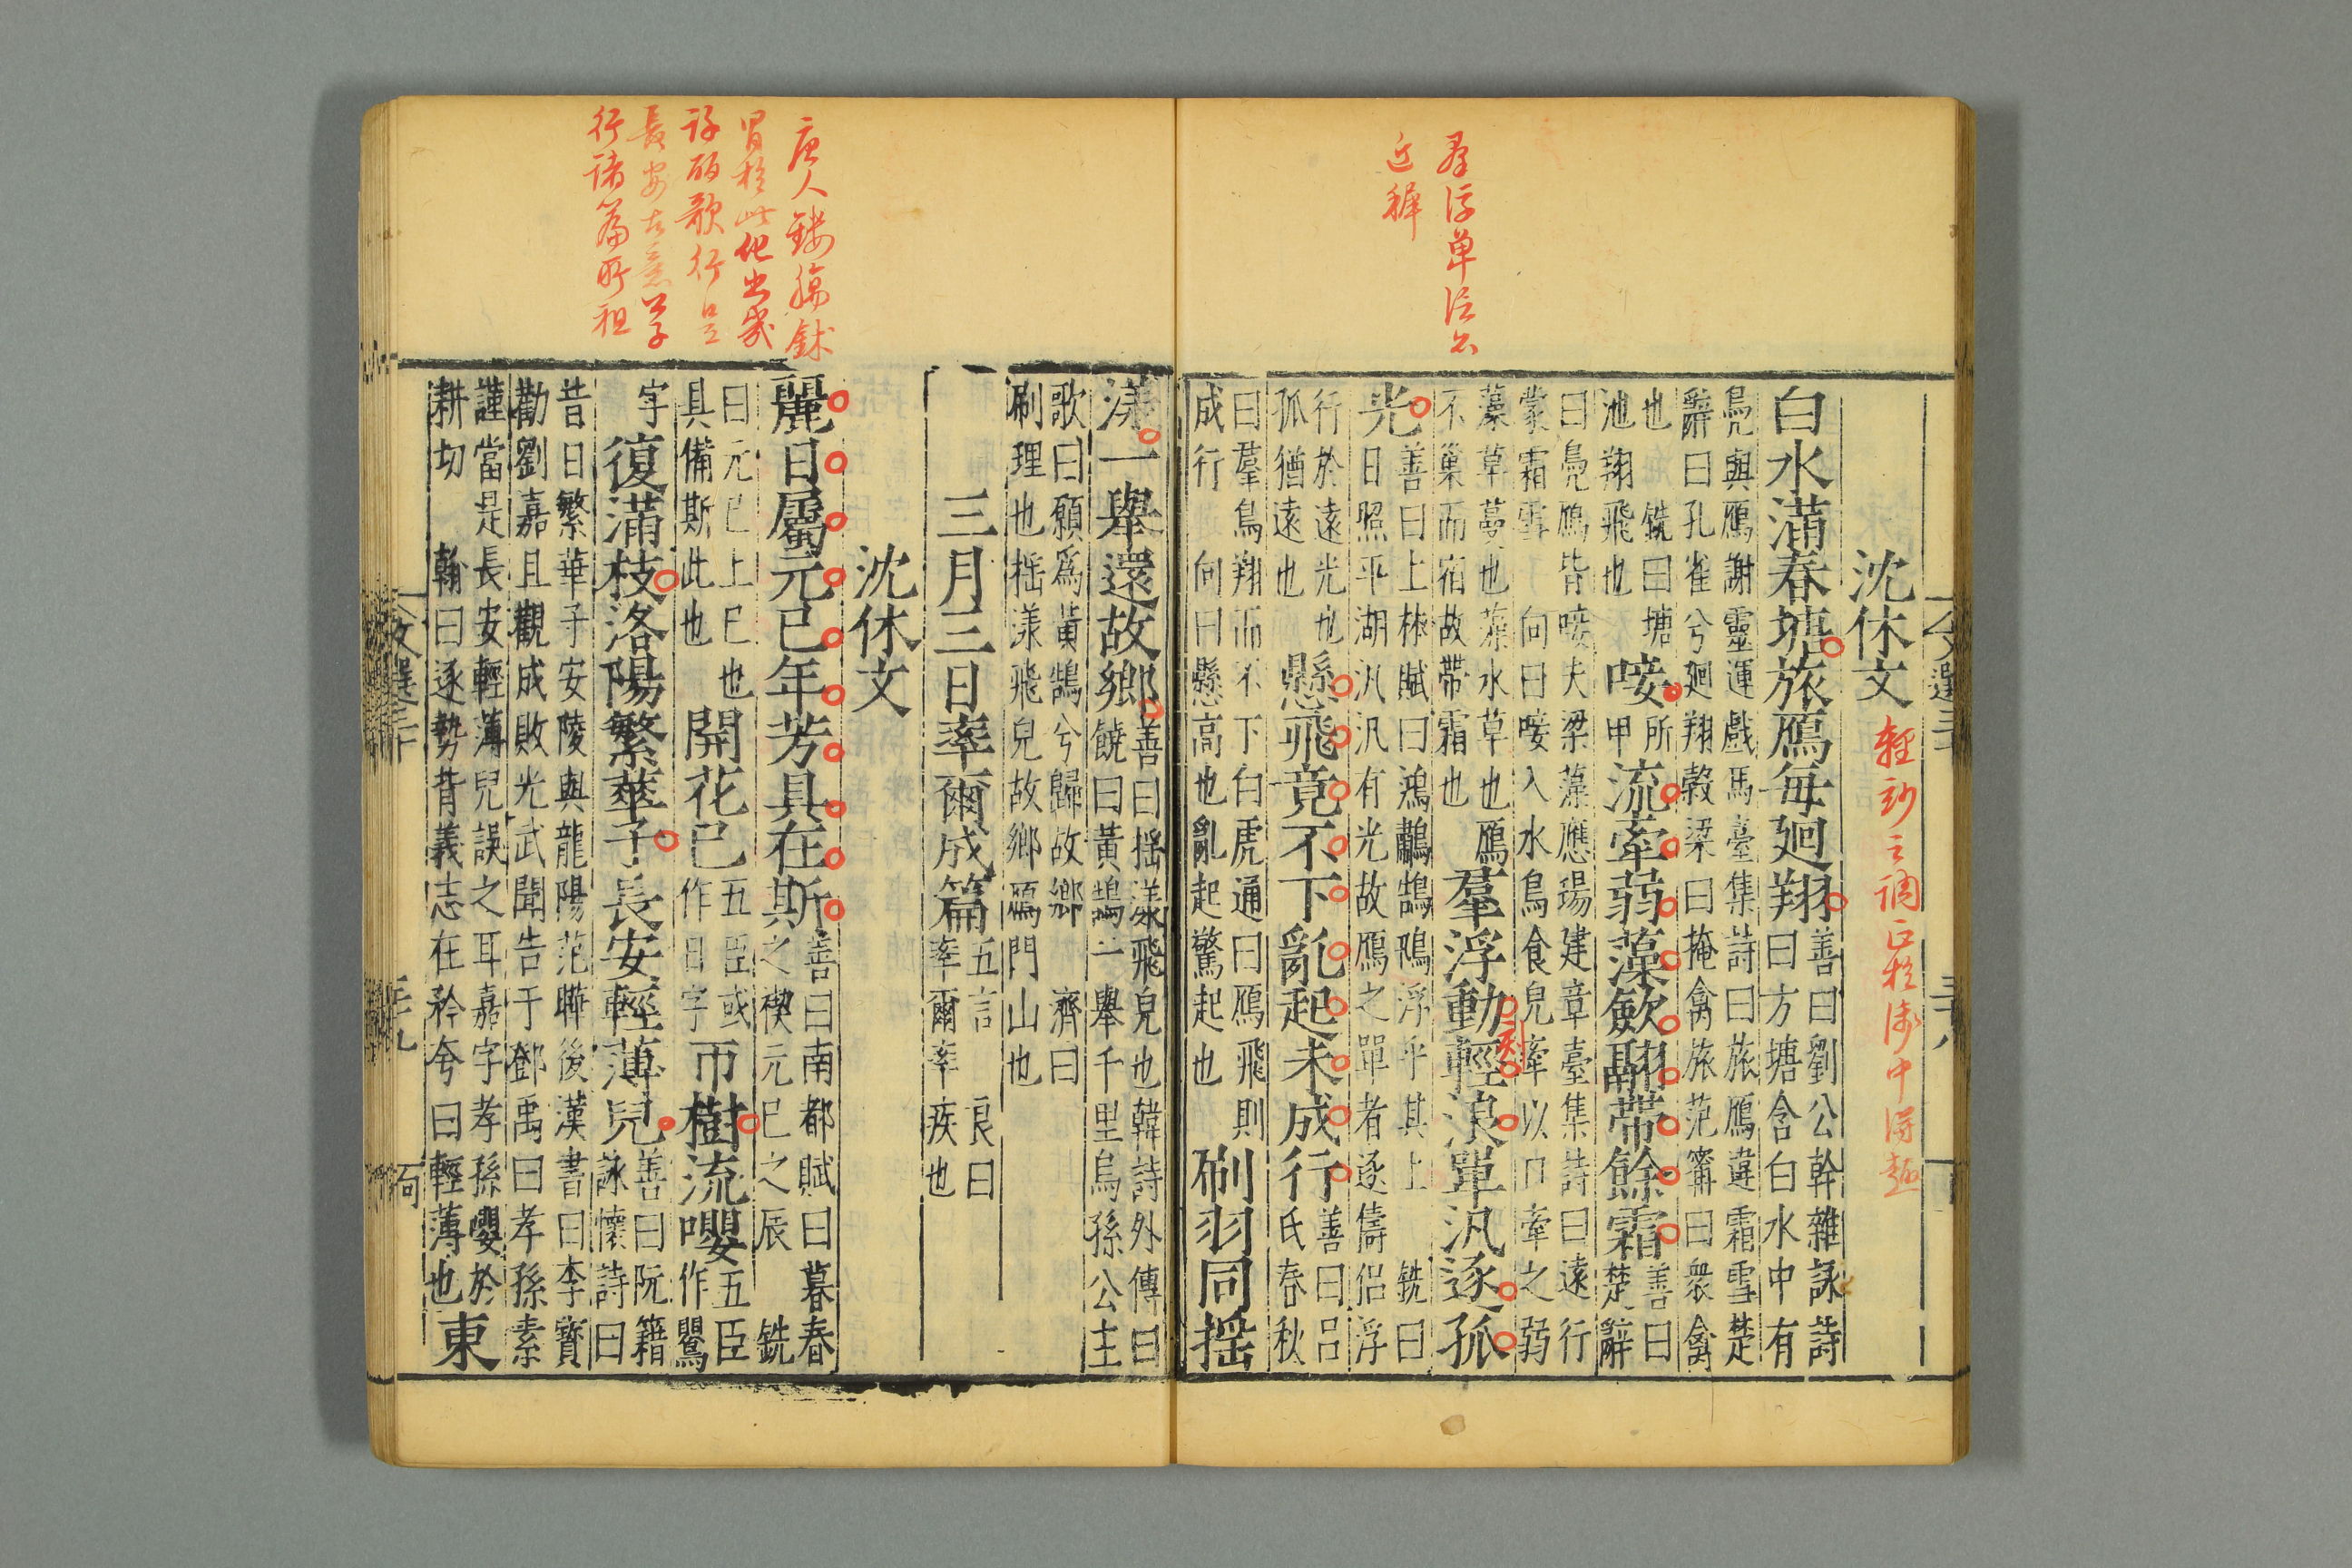 沈休文
輕
調
白水滿春塘旅鴈每廻翔善曰劉公幹雜詠詩曰方塘含白水中有
鳧與鴈謝靈運戲馬臺集詩曰旅鴈違霜雪楚
辭曰孔雀兮廻翔穀梁曰掩禽旅范甯曰衆禽
也 銑曰塘池翔飛也唼所甲流牽弱藻歛翮帶餘霜善曰楚辭
曰鳧鴈皆唼夫梁藻應瑒建章臺集詩曰遠行
蒙霜雪 向曰唼入水鳥食皃牽以口牽之弱
藻草蔓也藻水草也鴈不巢而宿故帶霜也羣浮動輕浪單汎逐孤
光善曰上林賦曰鴻鷫鵠鴇浮乎其上 銑曰日照平湖汎汎有光故鴈之單者逐儔侶浮
行於遠光也孤猶遠也懸飛竟不下亂起未成行善曰呂氏春秋
曰羣鳥翔而不下白虎通曰鴈飛則成行 向曰懸高也亂起驚起也刷羽同揺
羣浮單泛公
近穉
漾一舉還故鄉善曰揺漾飛皃也韓詩外傳曰饒曰黃鵠一舉千里烏孫公主
歌曰願爲黃鵠兮歸故鄉 濟曰
刷理也揺漾飛皃故鄉鴈門山也
三月三日率爾成篇五言 良曰率爾率疾也
沈休文
麗日屬元巳年芳具在斯善曰南都賦曰暮春之禊元巳之辰 銑
曰元巳上巳也具備斯此也開花已五臣或作日字帀樹流嚶五臣作鸎
字復滿枝洛陽繁華子長安輕薄兒善曰阮籍詠懷詩曰
昔日繁華子安陵與龍陽范曄後漢書曰李寳
勸劉嘉且觀成敗光武聞告于鄧禹曰孝孫素
謹當是長安輕薄兒誤之耳嘉字孝孫嚶於
耕切 翰曰逐勢背義志在矜夸曰輕薄也東
唐人
此他出
歌行
長安
行諸篇所祖
文選三十
三十九